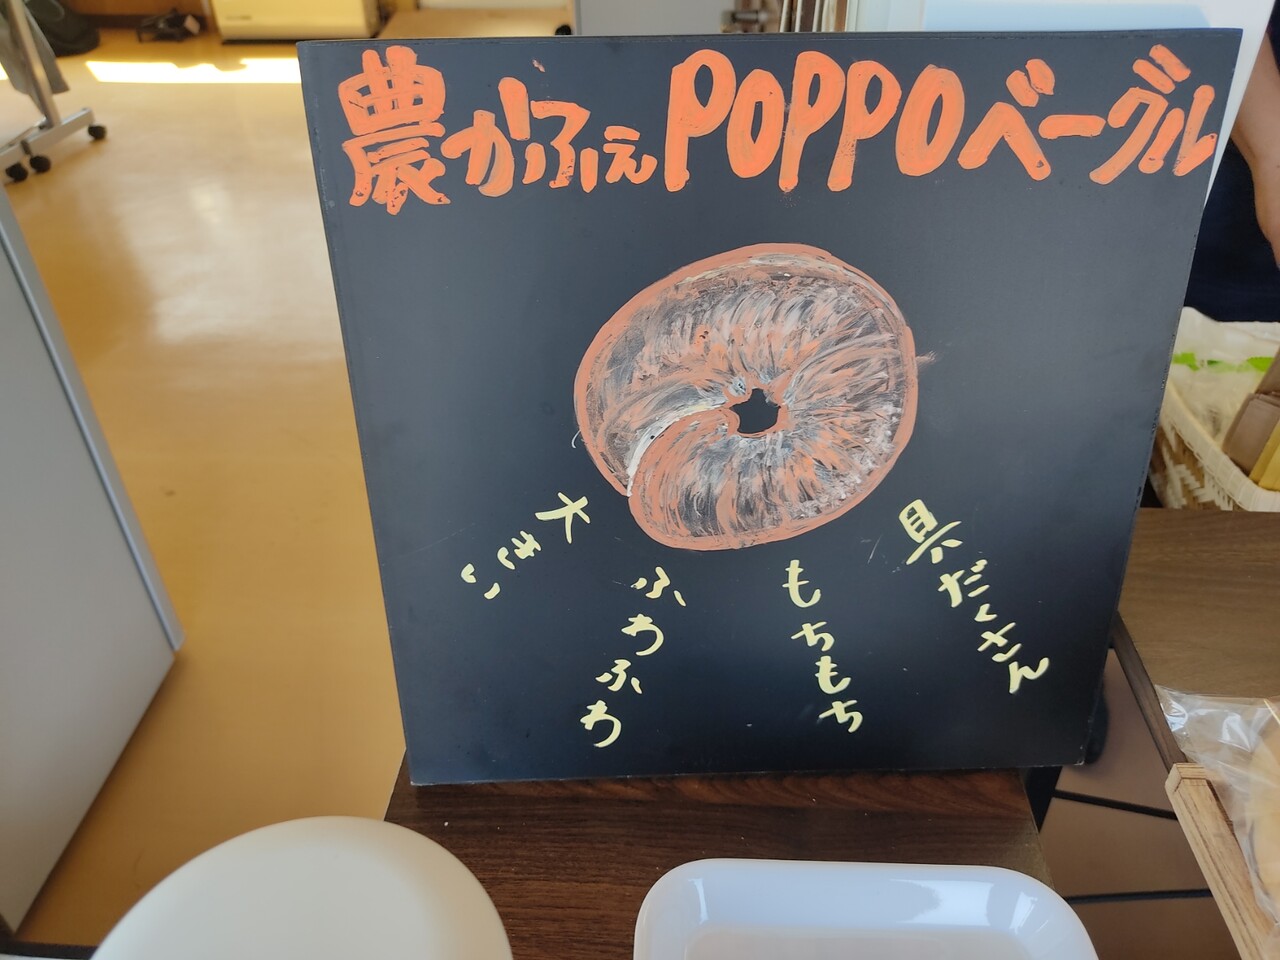 農かふぇPOPPOベーグル
具だくさん
もちもち
ふわふわ
大きい